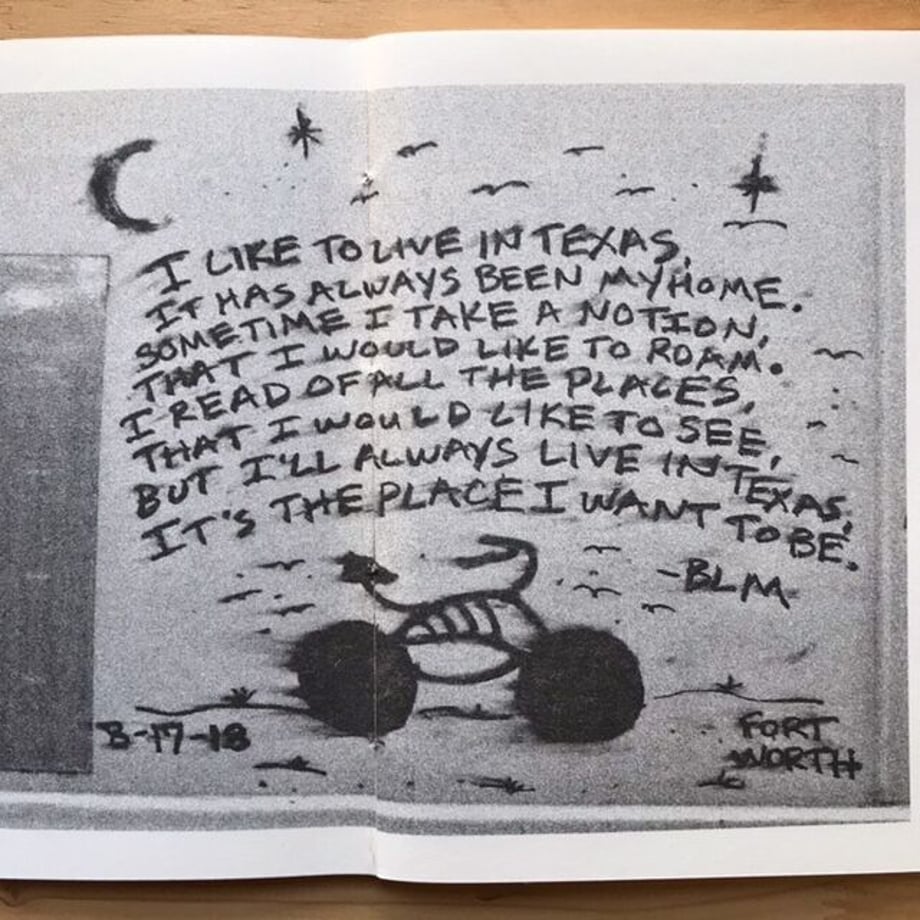 I LIKE TO LIVE IN TEXAS,
IT HAS ALWAYS BEEN MY HOME.
SOMETIME I TAKE A NOTION,
THAT I WOULD LIKE TO ROAM.
I READ OF ALL THE PLACES,
THAT I WOULD LIKE TO SEE,
BUT I'LL ALWAYS LIVE IN TEXAS,
IT'S THE PLACE I WANT TO BE.
-BLM
8-17-18
FORT
WORTH